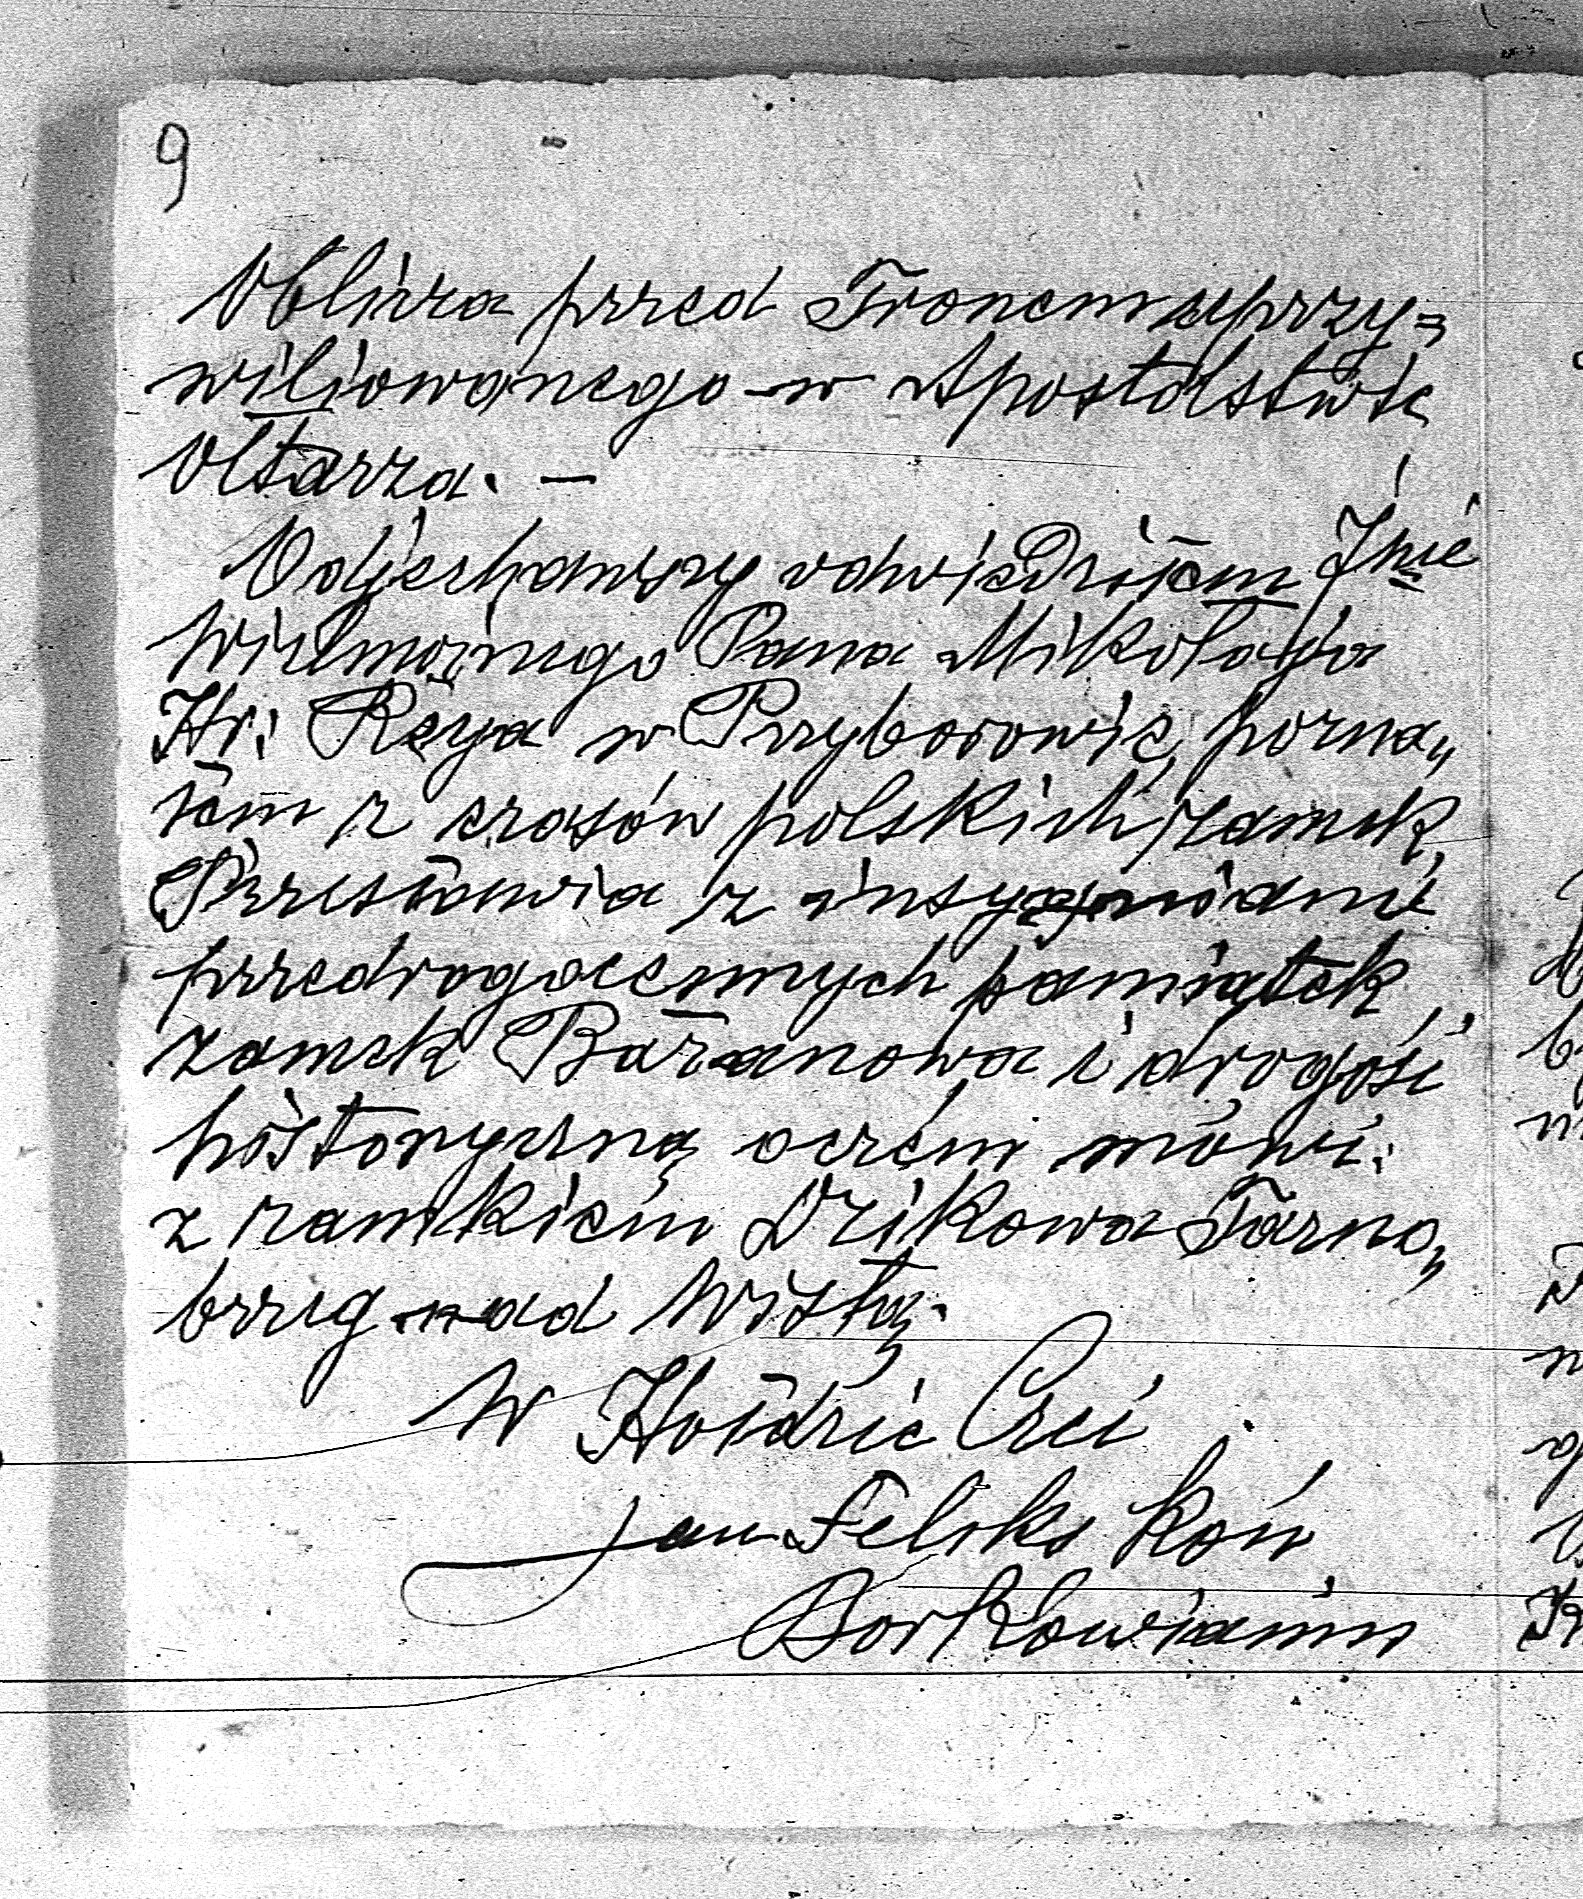 9
Oblicza przed Tronem uprzy=
wiliowanego w Apostolstwie
Ołtarza. —
Odjechawszy odwiedziłem Jmć
Wielmożnego Pana Mikołaja
Hr: Reya w Przyborowie, pozna„
łem z czasów polskich zamek
Przecławia z insygniami
przedrogocennych pamiątek,
zamek Baranowa i drogość
historyczną oczém mówi:
z zamkiem Dzikowa Tarno„
brzeg nad Wisłą.
W Hołdzie Czci
Jan Feliks Koń
Borkowianin